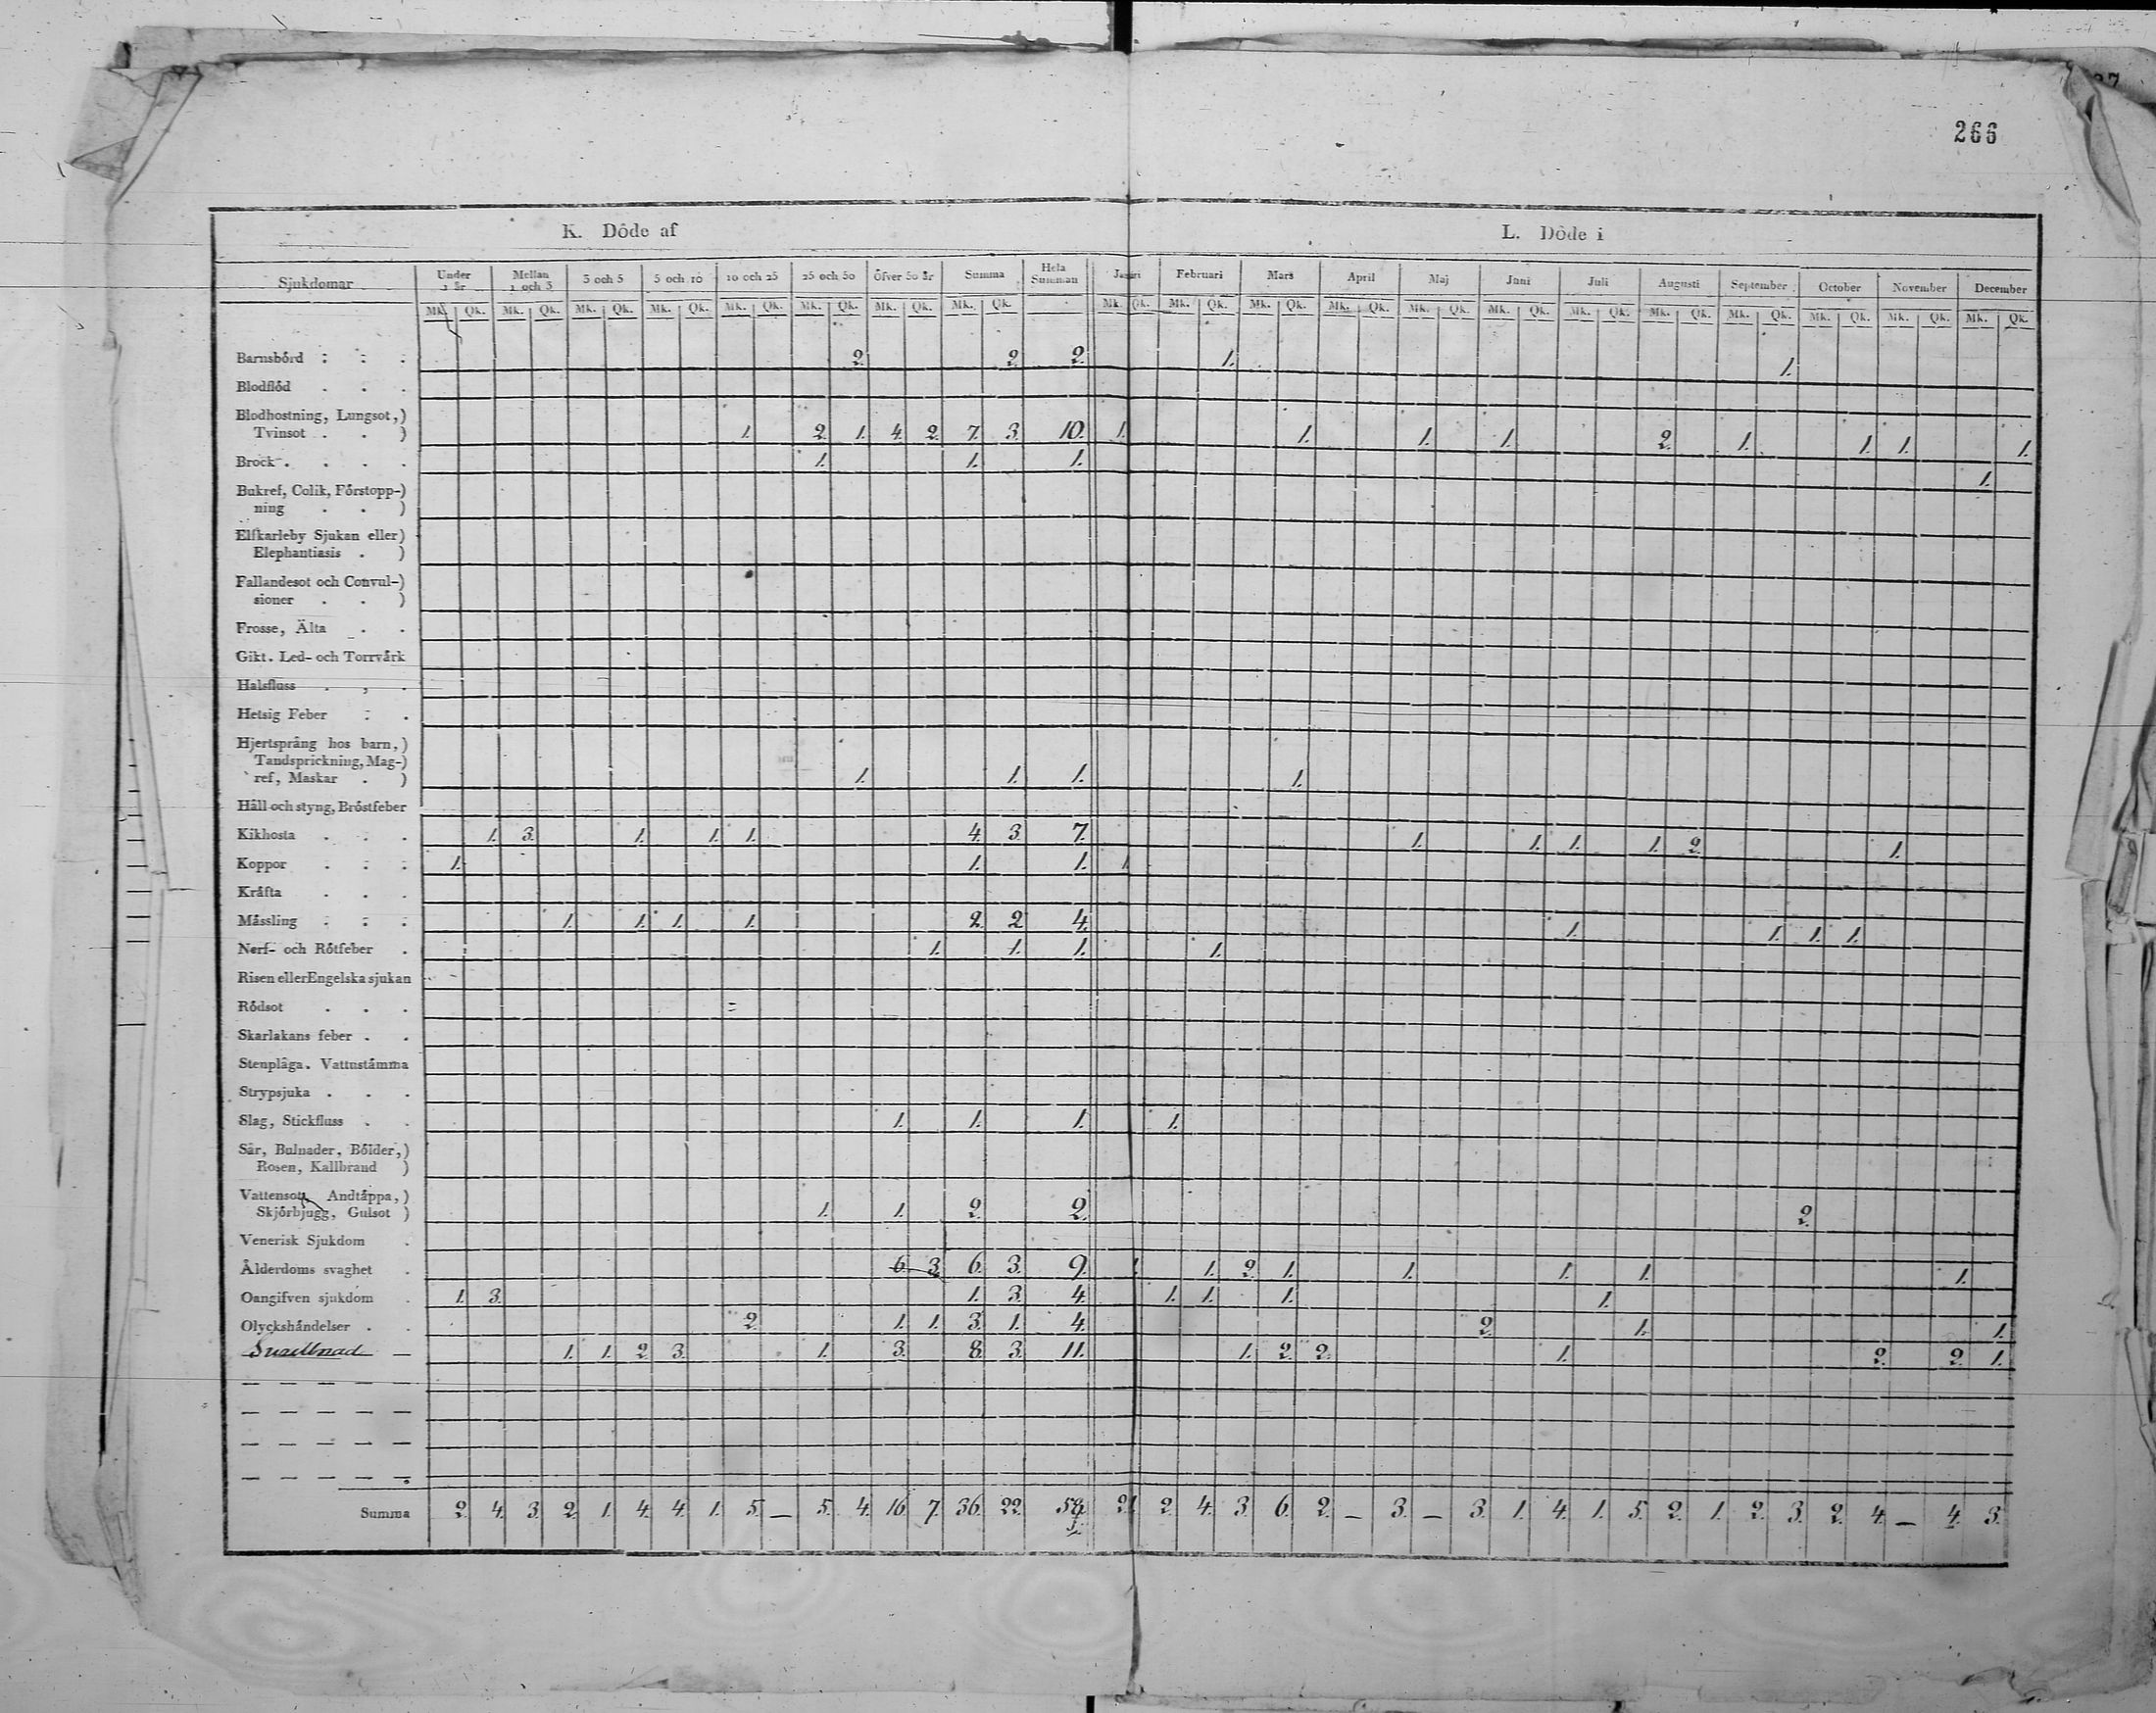 266
K. Döde af L. Döde i
Sjukdomar Under 1 år Mellan 1 och 3 3 och 5 5 och 10 10 och 25 25 och 50 Öfver 50 år Summa Hela Summan Januari Februari Mars April Maj Juni Juli Augusti September October November December
Mk. Qk. Mk. Qk. Mk. Qk. Mk. Qk. Mk. Qk. Mk. Qk. Mk. Qk. Mk. Qk. Mk. Qk. Mk. Qk. Mk. Qk. Mk. Qk. Mk. Qk. Mk. Qk. Mk. Qk. Mk. Qk. Mk. Qk. Mk. Qk. Mk. Qk. Mk. Qk.
Barnsbörd 2. 2. 2. 1. 1.
Blodflöd
Blodhostning, Lungsot,)
Tvinsot ) 1. 2. 1. 4. 2. 7. 3. 10. 1. 1. 1. 1. 2. 1. 1. 1. 1.
Brock 1. 1. 1. 1.
Bukref, Colik, Förstopp-)
ning )
Elfkarleby Sjukan eller)
Elephantiasis )
Fallandesot och Convul-)
sioner )
Frosse, Älta
Gikt. Led- och Torrvärk
Halsfluss
Hetsig Feber
Hjertsprång hos barn,)
Tandsprickning, Mag-)
ref, Maskar ) 1. 1. 1. 1.
Håll och styng, Bröstfeber
Kikhosta 1. 3. 1. 1. 1. 4. 3. 7. 1. 1. 1. 1. 2. 1.
Koppor 1. 1. 1. 1.
Kräfta
Mässling 1. 1. 1. 1. 2. 2 4. 1. 1. 1. 1.
Nerf- och Rötfeber 1. 1. 1. 1.
Risen eller Engelska sjukan
Rödsot
Skarlakans feber
Stenplåga. Vattustämma
Strypsjuka
Slag, Stickfluss 1. 1. 1. 1.
Sår, Bulnader, Bölder,)
Rosen, Kallbrand )
Vattensot, Andtäppa,)
Skjörbjugg, Gulsot ) 1. 1. 2. 2. 2.
Venerisk Sjukdom
Ålderdoms svaghet 6. 3. 6. 3. 9. 1. 1. 2. 1. 1. 1. 1. 1.
Oangifven sjukdom 1. 3. 1. 3. 4. 1. 1. 1. 1.
Olyckshändelser 2. 1. 1. 3. 1. 4. 2. 1. 1.
1. 1. 2. 3. 1. 3. 8. 3. 11. 1. 2. 2. 1. 2. 2. 1.
Summa 2. 4. 3. 2. 1. 4. 4. 1. 5. — 5. 4. 16 7. 36. 22. 58. 2 1 2. 4. 3. 6. 2. — 3. — 3. 1. 4. 1. 5. 2. 1. 2. 3. 2. 4. — 4. 3.